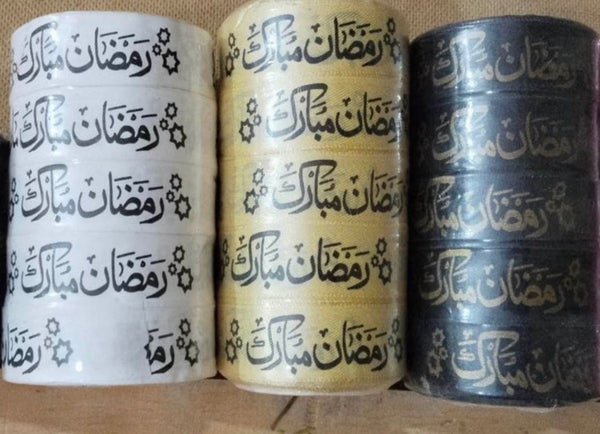 رمضان مبارك
رمضان مبارك
رمضان مبارك
رمضان مبارك
رمضان
رمضان مبارك
رمضان مبارك
رمضان مبارك
رمضان مبارك
رمضان مبارك
رمضان مبارك
رمضان مبارك
رمضان مبارك
رمضان مبارك
رمضان مبارك